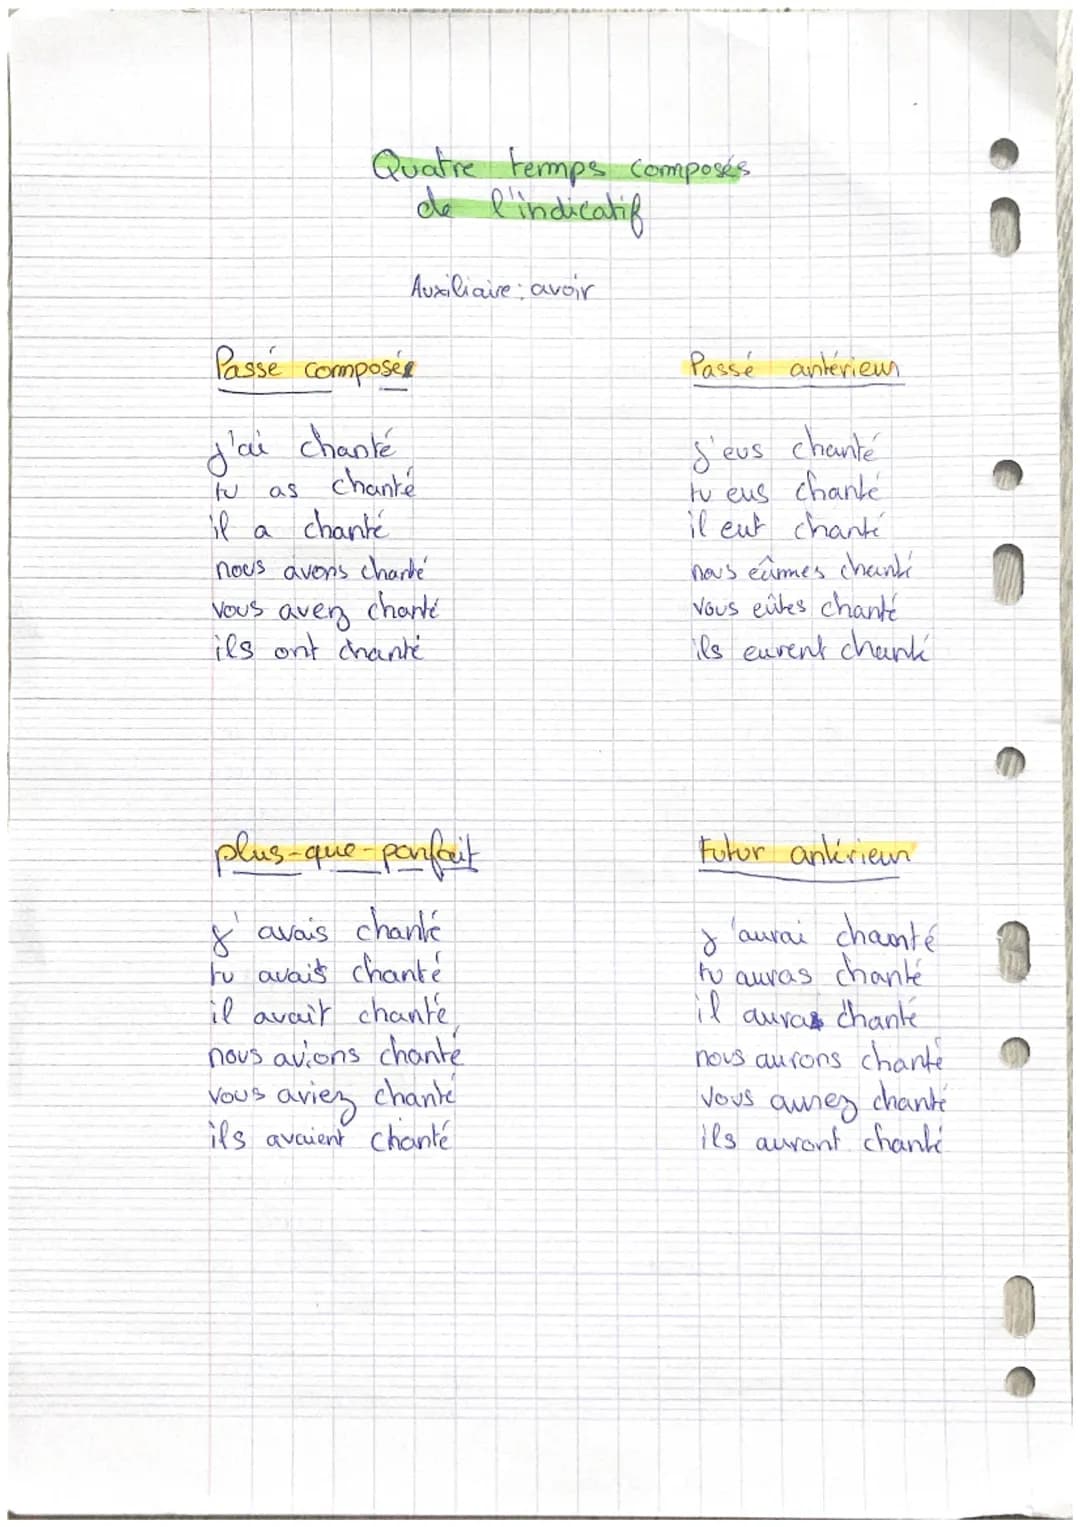 Quatre temps composés
de l'indicatif
Auxiliaire : avoir
Passé composé
j'ai chanté
tu as chanté
il a chanté
nous avons chanté
vous avez chanté
ils ont chanté
Passé antérieur
j'eus chanté
tu eus chanté
il eut chanté
nous eûmes chanté
vous eûtes chanté
ils eurent chanté
plus-que-parfait
j'avais chanté
tu avais chanté
il avait chanté
nous avions chanté
vous aviez chanté
ils avaient chanté
Futur antérieur
j'aurai chanté
tu auras chanté
il aura chanté
nous aurons chanté
vous aurez chanté
ils auront chanté